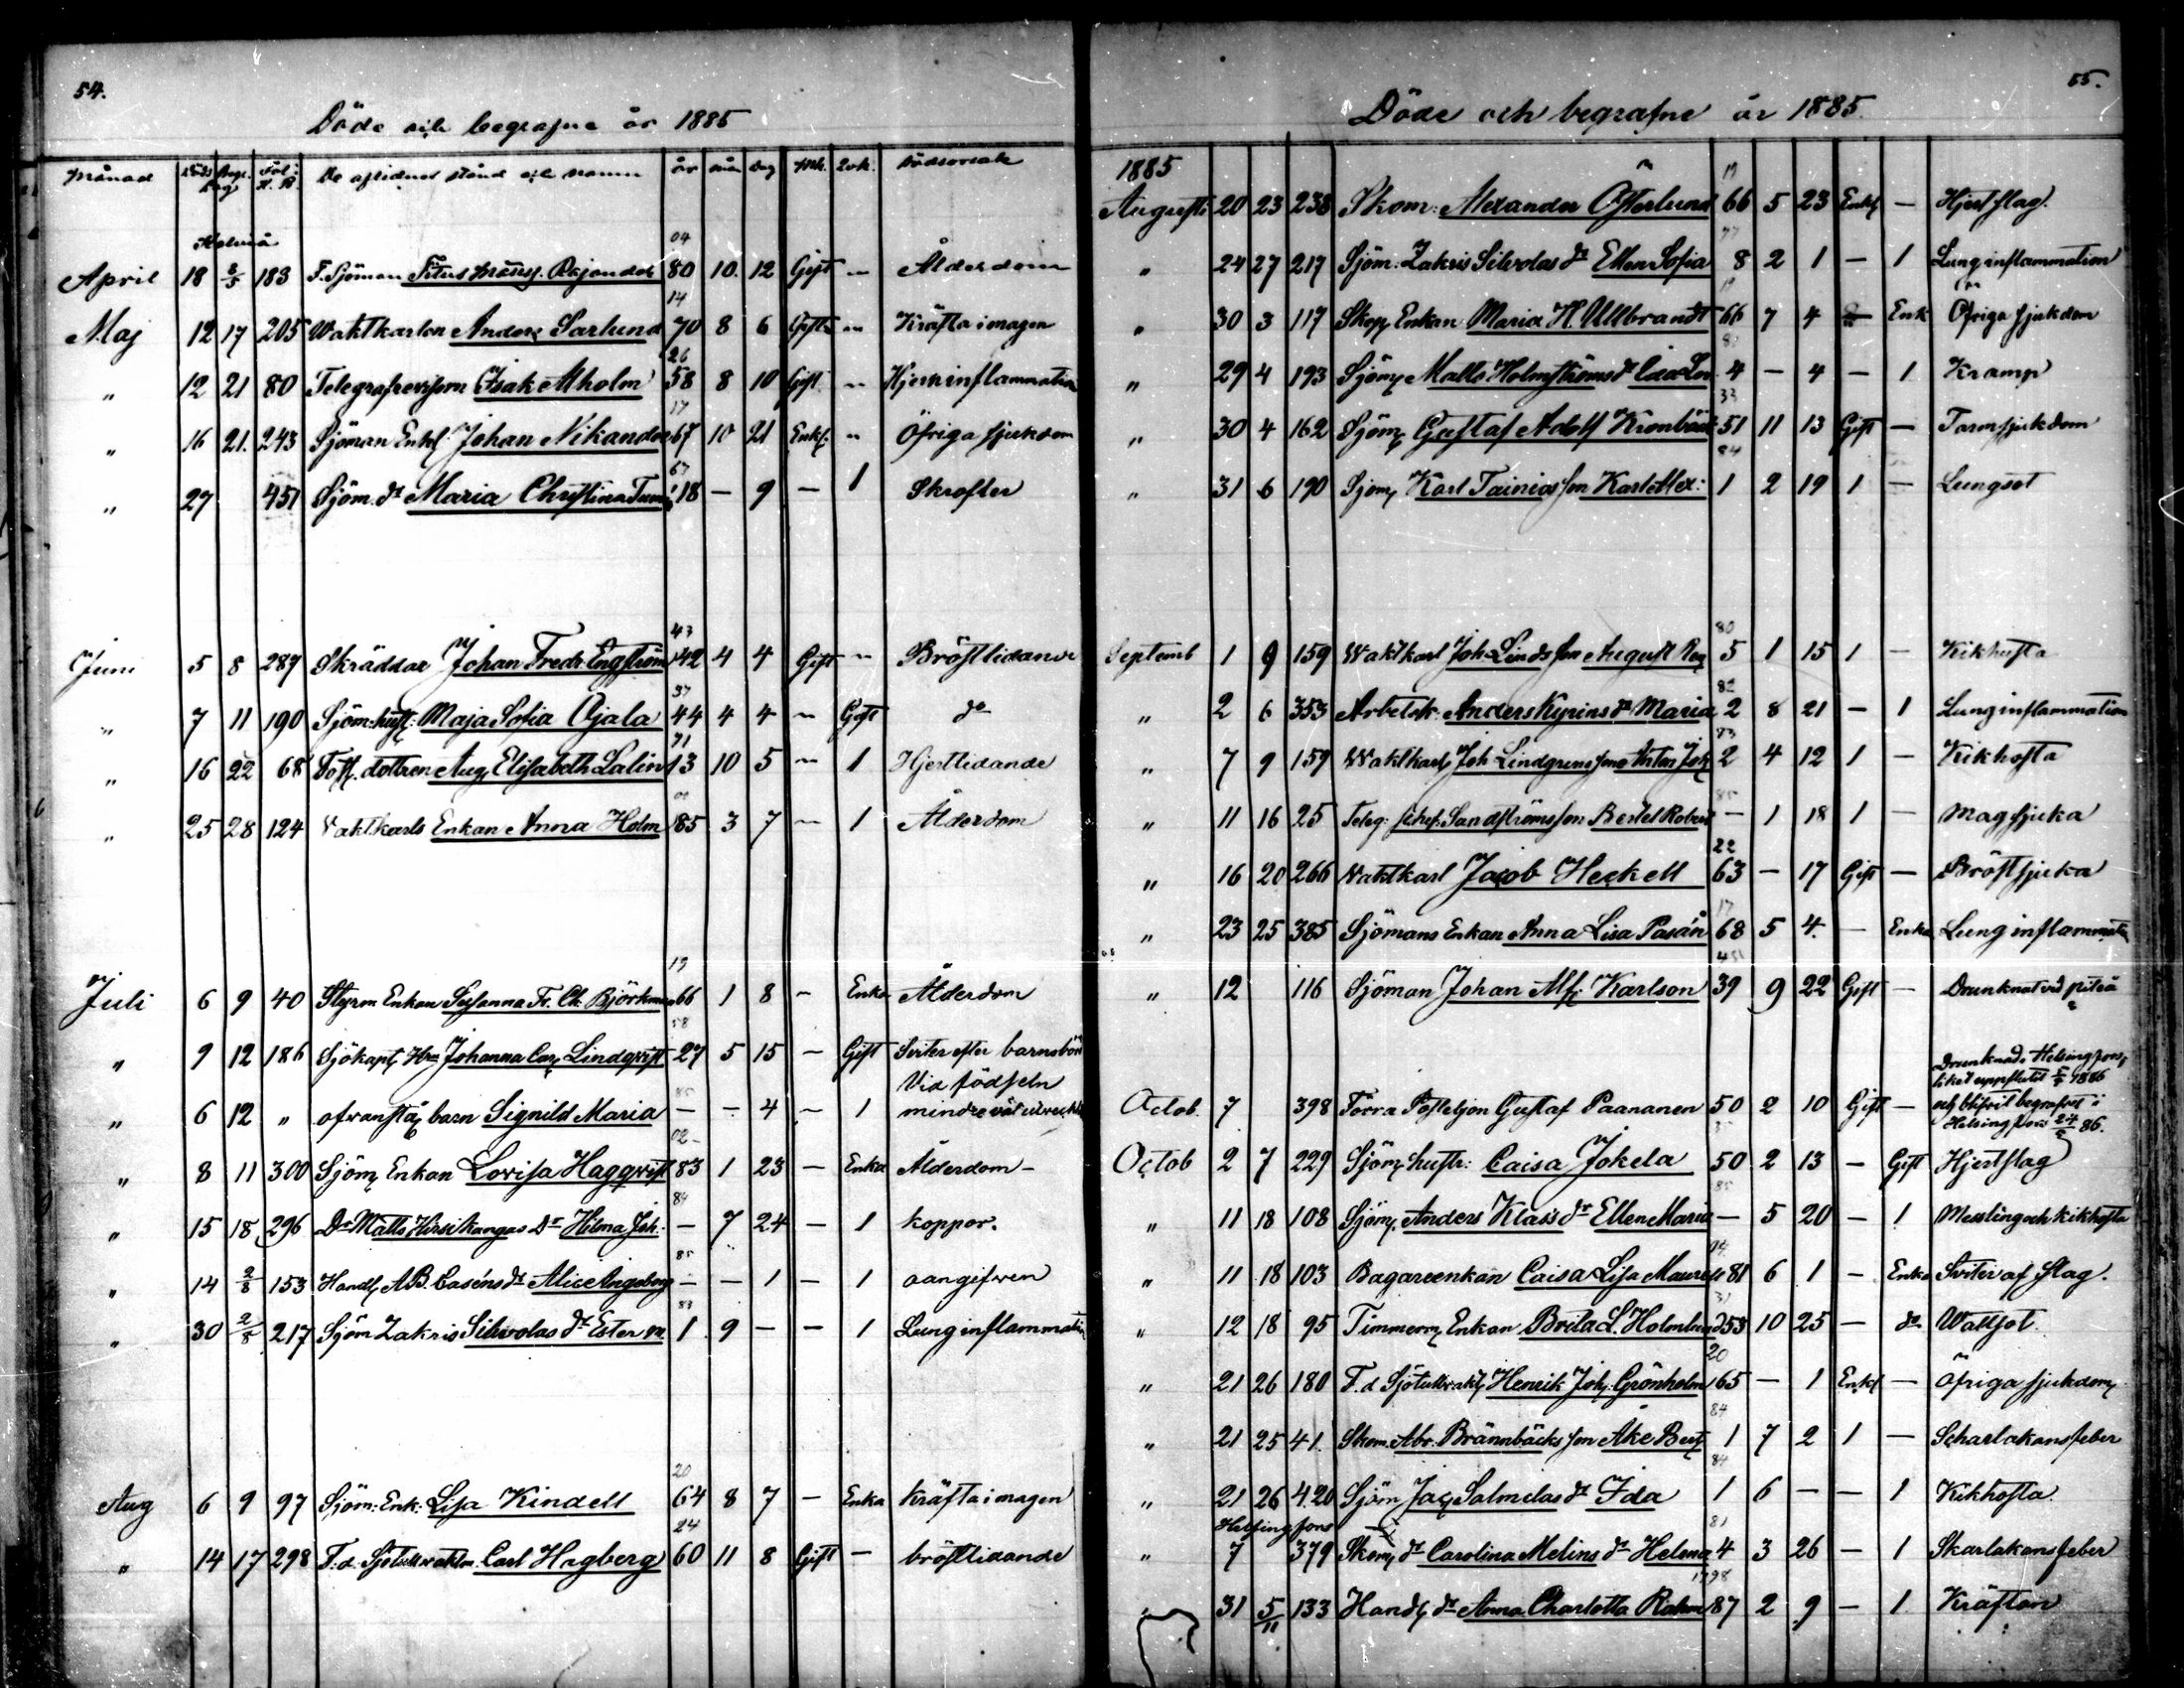 54.
Döde och begrafne år 1885
Månad Döds Begr. dag Fol: K. B. De aflidnes stånd och namn år mån dag Mk. Qvk. Dödsorsak
Kelviå 04
April 18 2/5 183 F. Sjöman Titus Rajander 80 10. 12 Gift – Ålderdom
14
Maj 12 17 205 Waktkarlen Anders Sarlund 70 8 6 Gift – Kräfta i magen
26
" 12 21 80 Isak Aholm 58 8 10 Gift – Hjerninflammation
17
" 16 21. 243 Sjöman Enkl. Johan Nikander 67 10 21 Enkl. – Öfriga sjukdom
67
" 27 451 Sjöm. dr Maria Christina 18 – 9 – 1 Skrofler
43
Juni 5 8 289 Skräddar Johan Fredr Engström 42 4 4 Gift – Bröstlidande
" 7 11 190 Sjöm: hust: Maja Sofia Ojala 44 4 4 – Gift do
71
" 16 22 68 dottren Aug. Elisabeth Salin 13 10 5 – 1 Hjertlidande
00
" 25 28 124 Vaktkarls Enkan Anna Holm 85 3 7 – 1 Ålderdom
19
Juli 6 9 40 Styrm Enkan Susanna Fr. Ch. Björkman 66 1 8 – Enka Ålderdom
58
" 9 12 186 Sjökapt. Hru Johanna Car. Lindqvist 27 5 15 – Gift Sviter efter barnsbörd
85 Vid födseln
" 6 12 " barn Signild Maria – – 4 – 1 mindre
02
" 8 11 300 Sjöm. Enkan Lovisa Hagqvist 83 1 23 – Enka Ålderdom –
84
" 15 18 296 Do Matts Hirsikangas Dr Hilma Joh. – 7 24 – 1 koppor.
85
" 14 2/8 153 Handl. A.B. Caséns dr Alice Angeborg – – 1 – 1 oangifven
83
" 30 2/8 217 Sjöm Zakris Silvolas dr Ester M. 1 9 – – 1 Lunginflammation
20
Aug 6 9 97 Sjöm: Enk: Lisa Kindell 64 8 7 – Enka Kräfta i magen
24
" 14 17 298 F.d. Sjötullvaktm. Carl Hagberg 60 11 8 Gift – bröstlidande
55.
Döde och begrafne år 1885.
1885 19
Augusti 20 23 238 Skom: Alexander Österlund 66 5 23 Enkl – Hjertslag.
77
" 24 27 217 Sjöm: Zakris Silvolas dr Ellen Sofia 8 2 1 – 1 Lunginflammation
19
" 30 3 117 Skep. Enkan Maria H. Ullbrandt 66 7 4 Enk Öfriga sjukdom
" 29 4 193 Sjöm. Matts Holmströms dr 4 – 4 – 1 Kramp
33
" 30 4 162 Sjöm. Gustaf Adolf Kronbäck 51 11 13 Gift – Tarmsjukdom
84
" 31 6 190 Sjöm. Karl Tainios son Karl Alex: 1 2 19 1 – Lungsot
80
Septemb 1 9 159 Waktkarl Joh Linds son August 5 1 15 1 – Kikhosta
82
" 2 6 353 Arbetsk: Anders Kyrins dr Maria 2 8 21 – 1 Lunginflammation
83
" 7 9 159 Waktkarl Joh Lindgrens son Anton Joh. 2 4 12 1 – Kikhosta
85
" 11 16 25 Teleg: schef. Sandströms son Bertel Robert – 1 18 1 – Magsjuka
22
" 16 20 266 Vaktkarl Jacob Heckell 63 – 17 Gift – Bröstsjuka
17
" 23 25 385 Sjömans Enkan Anna Lisa Pasån 68 5 4. – Enka Lunginflammation
" 12 116 Sjöman Johan Alf. Karlson 39 9 22 Gift – Drunknat vid piteå
Drunknade Helsingfors,
liket uppflutit 1886
och blifvit begrafvet i
Helsingfors 24/5 86.
Octob. 7 398 Förra Postiljon Gustaf Paananen 50 2 10 Gift –
Octob 2 7 229 Sjöm. hustr: Caisa Jokela 50 2 13 – Gift Hjertslag
85
" 11 18 108 Sjöm. Anders Klass dr Ellen Maria – 5 20 – 1 Messling och kikhosta
04
" 11 18 103 Bagareenkan Caisa Lisa Maurell 81 6 1 – Enka Sviter af slag.
31
" 12 18 95 Timmerm. Enkan Brita L. Holmlund 53 10 25 – do Wattsot.
20
" 21 26 180 F.d Sjötullvakt. Henrik Joh. Grönholm 65 – 1 Enkl – Öfriga sjukdom.
84
" 21 25 41. Skom. Abr. Brännbäcks son Åke Bert. 1 7 2 1 – Scharlakansfeber
84
" 21 26 420 Sjöm Jac. Salmelas dr Ida 1 6 – – 1 Kikhosta.
Helsingfors 81
" 7 379 Skom. dr Carolina Melins dr Helena 4 3 26 – 1 Skarlakansfeber
1798
" 31 5/11 133 Handl. dr Anna Charlotta Rahm 87 2 9 – 1 Kräftan